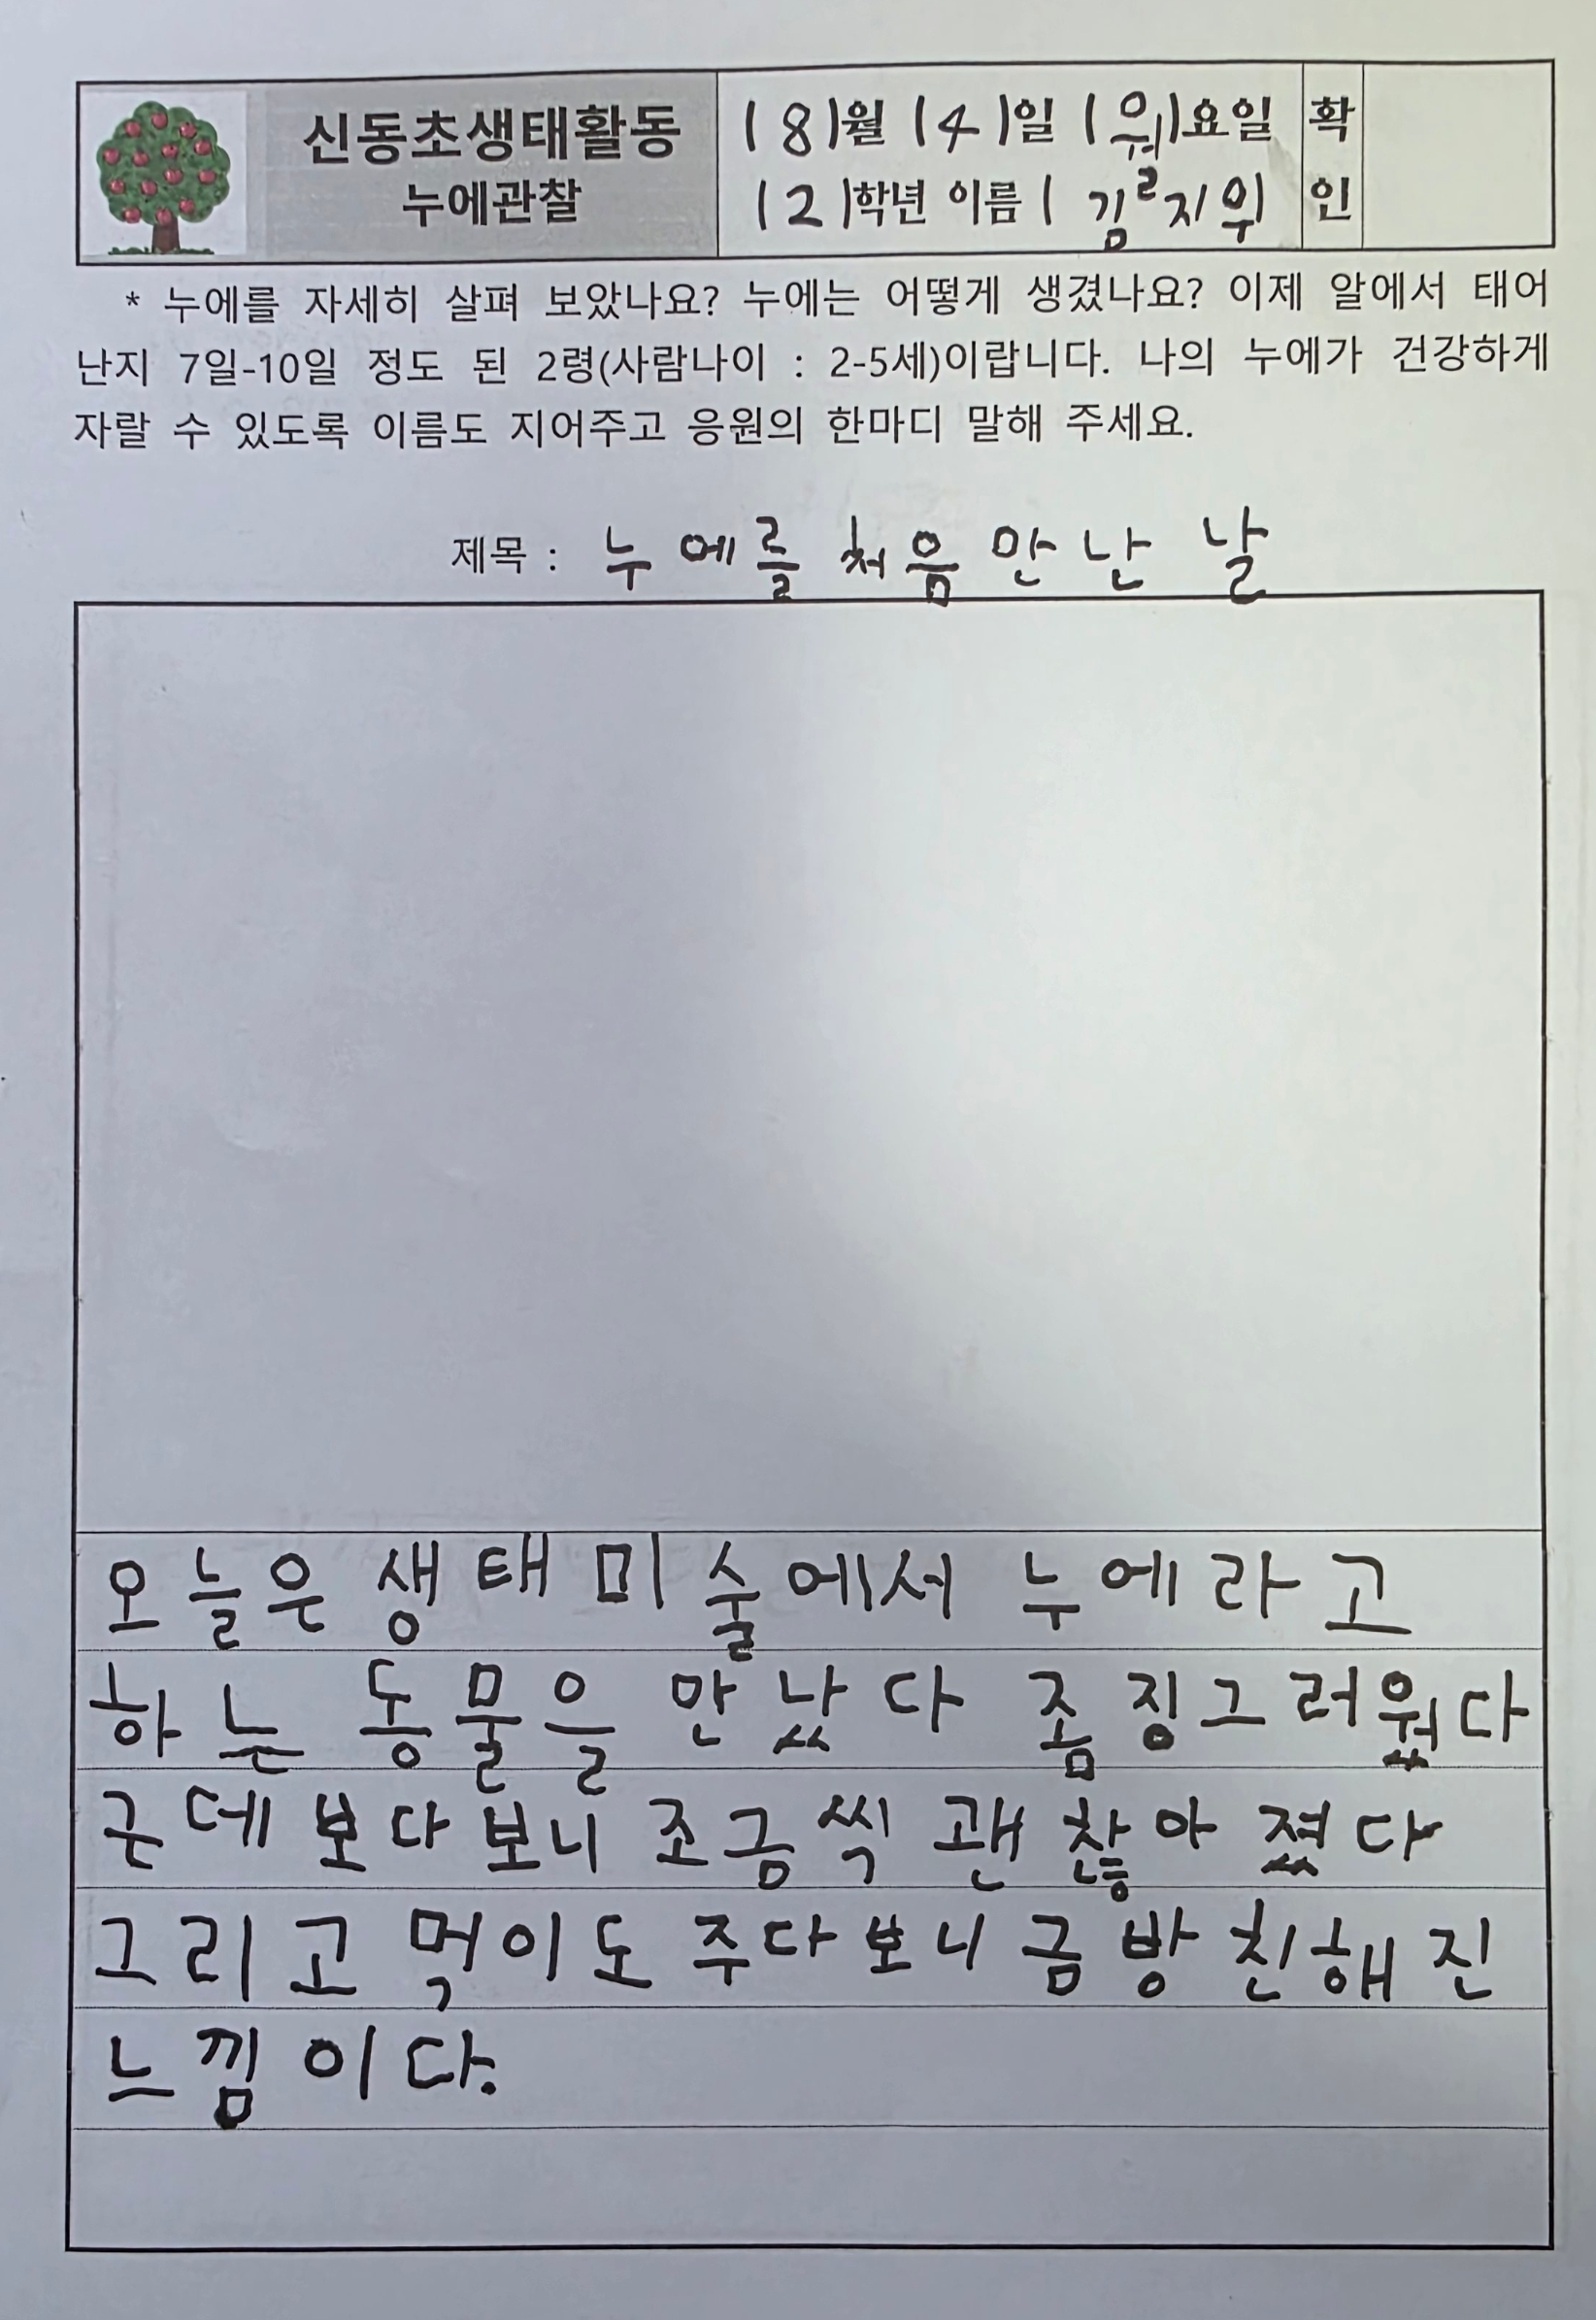 신동초생태활동
누에관찰
( 8 )월 ( 4 )일 ( 월 )요일
( 2 )학년 이름 ( 김지우
확인
* 누에를 자세히 살펴 보았나요? 누에는 어떻게 생겼나요? 이제 알에서 태어
난지 7일-10일 정도 된 2령(사람나이 : 2-5세)이랍니다. 나의 누에가 건강하게
자랄 수 있도록 이름도 지어주고 응원의 한마디 말해 주세요.
제목 : 누에를 처음 만난 날
오늘은 생태미술에서 누에라고
하는 동물을 만났다 좀 징그러웠다
근데 보다보니 조금씩 괜찮아졌다
그리고 먹이도 주다보니 금방 친해진
느낌이다.